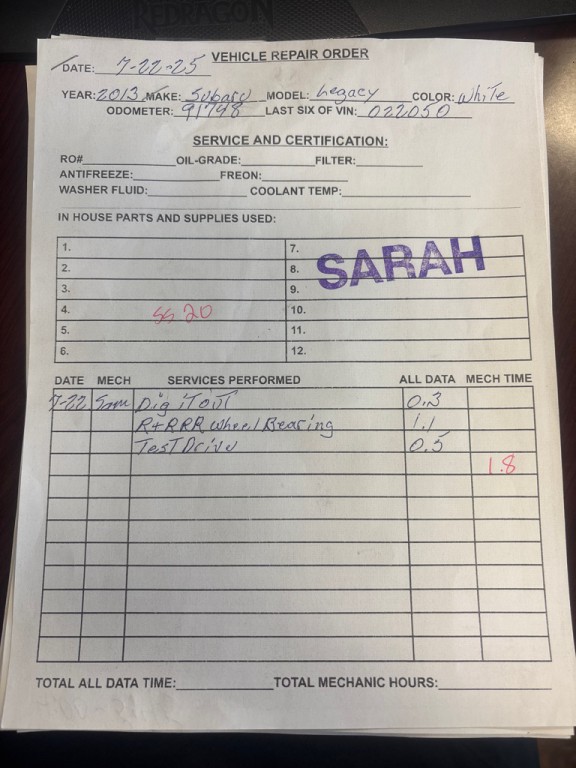 REDRAGON
VEHICLE REPAIR ORDER
DATE: 7-22-25
YEAR: 2013 MAKE: Subaru MODEL: Legacy COLOR: White
ODOMETER: 91748 LAST SIX OF VIN: 022050
SERVICE AND CERTIFICATION:
RO# OIL-GRADE: FILTER:
ANTIFREEZE: FREON:
WASHER FLUID: COOLANT TEMP:
IN HOUSE PARTS AND SUPPLIES USED:
1. 7.
2. 8. SARAH
3. 9.
4. SS 20 10.
5. 11.
6. 12.
DATE MECH SERVICES PERFORMED ALL DATA MECH TIME
7-22 Dig iT ouT 0.3
R+R RR wheel Bearing 1.1
TesT Drive 0.5
1.8
TOTAL ALL DATA TIME: TOTAL MECHANIC HOURS: